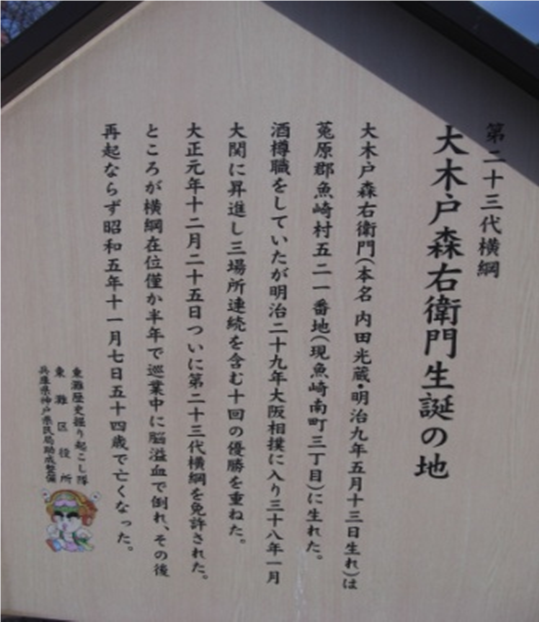 第二十三代横綱
大木戸森右衛門生誕の地
大木戸森右衛門(本名 内田光蔵・明治九年五月十三日生れ)は
菟原郡魚崎村五二一番地(現魚崎南町三丁目)に生れた。
酒樽職をしていたが明治二十九年大阪相撲に入り三十八年一月
大関に昇進し三場所連続を含む十回の優勝を重ねた。
大正元年十二月二十五日ついに第二十三代横綱を免許された。
ところが横綱在位僅か半年で巡業中に脳溢血で倒れ、その後
再起ならず昭和五年十一月七日五十四歳で亡くなった。
東灘歴史掘り起こし隊
東灘区役所
兵庫県神戸県民局助成整備